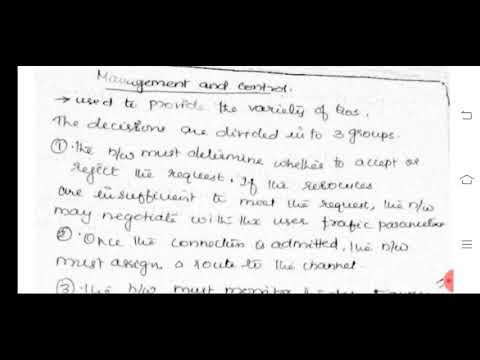 Management and control.
→ used to provide the variety of Qos.
The decisions are divided in to 3 groups.
① The n/w must determine whether to accept or
reject the request. If the resources
are insufficient to meet the request, the n/w
may negotiate with the user trafic parameter
②. Once the connection is admitted, the n/w
must assign a route to the channel.
③ The n/w must monitor